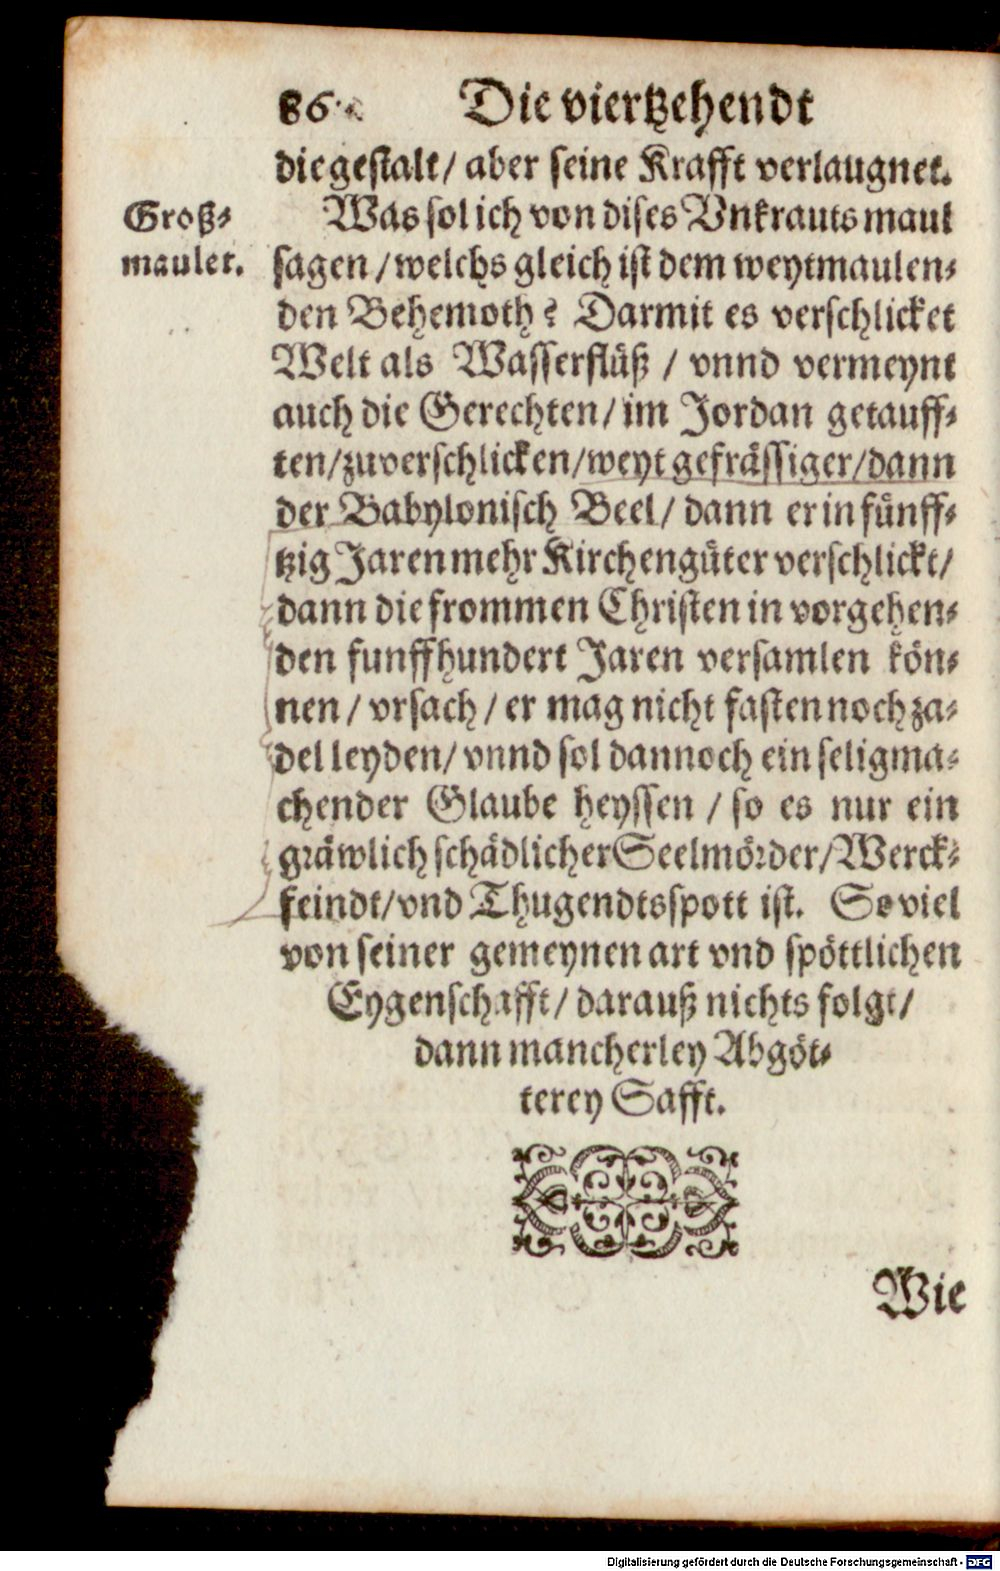 86. Die viertzehendt
die gestalt/ aber seine Krafft verlaugnet.
Groß-
mauler.
Was sol ich von dises Vnkrauts maul
sagen/ welchs gleich ist dem weytmaulen-
den Behemoth? Darmit es verschlicket
Welt als Wasserflüß / vnnd vermeynt
auch die Gerechten/ im Jordan getauff-
ten/ zuverschlicken/ weyt gefrässiger/ dann
der Babylonisch Beel/ dann er in fünff-
tzig Jaren mehr Kirchengüter verschlickt/
dann die frommen Christen in vorgehen-
den funffhundert Jaren versamlen kön-
nen/ vrsach/ er mag nicht fasten noch za-
del leyden/ vnnd sol dannoch ein seligma-
chender Glaube heyssen / so es nur ein
gräwlich schädlicher Seelmörder/ Werck-
feindt/ vnd Thugendtsspott ist. So viel
von seiner gemeynen art vnd spöttlichen
Eygenschafft/ darauß nichts folgt/
dann mancherley Abgöt-
terey Safft.
Wie
Digitalisierung gefördert durch die Deutsche Forschungsgemeinschaft - DFG